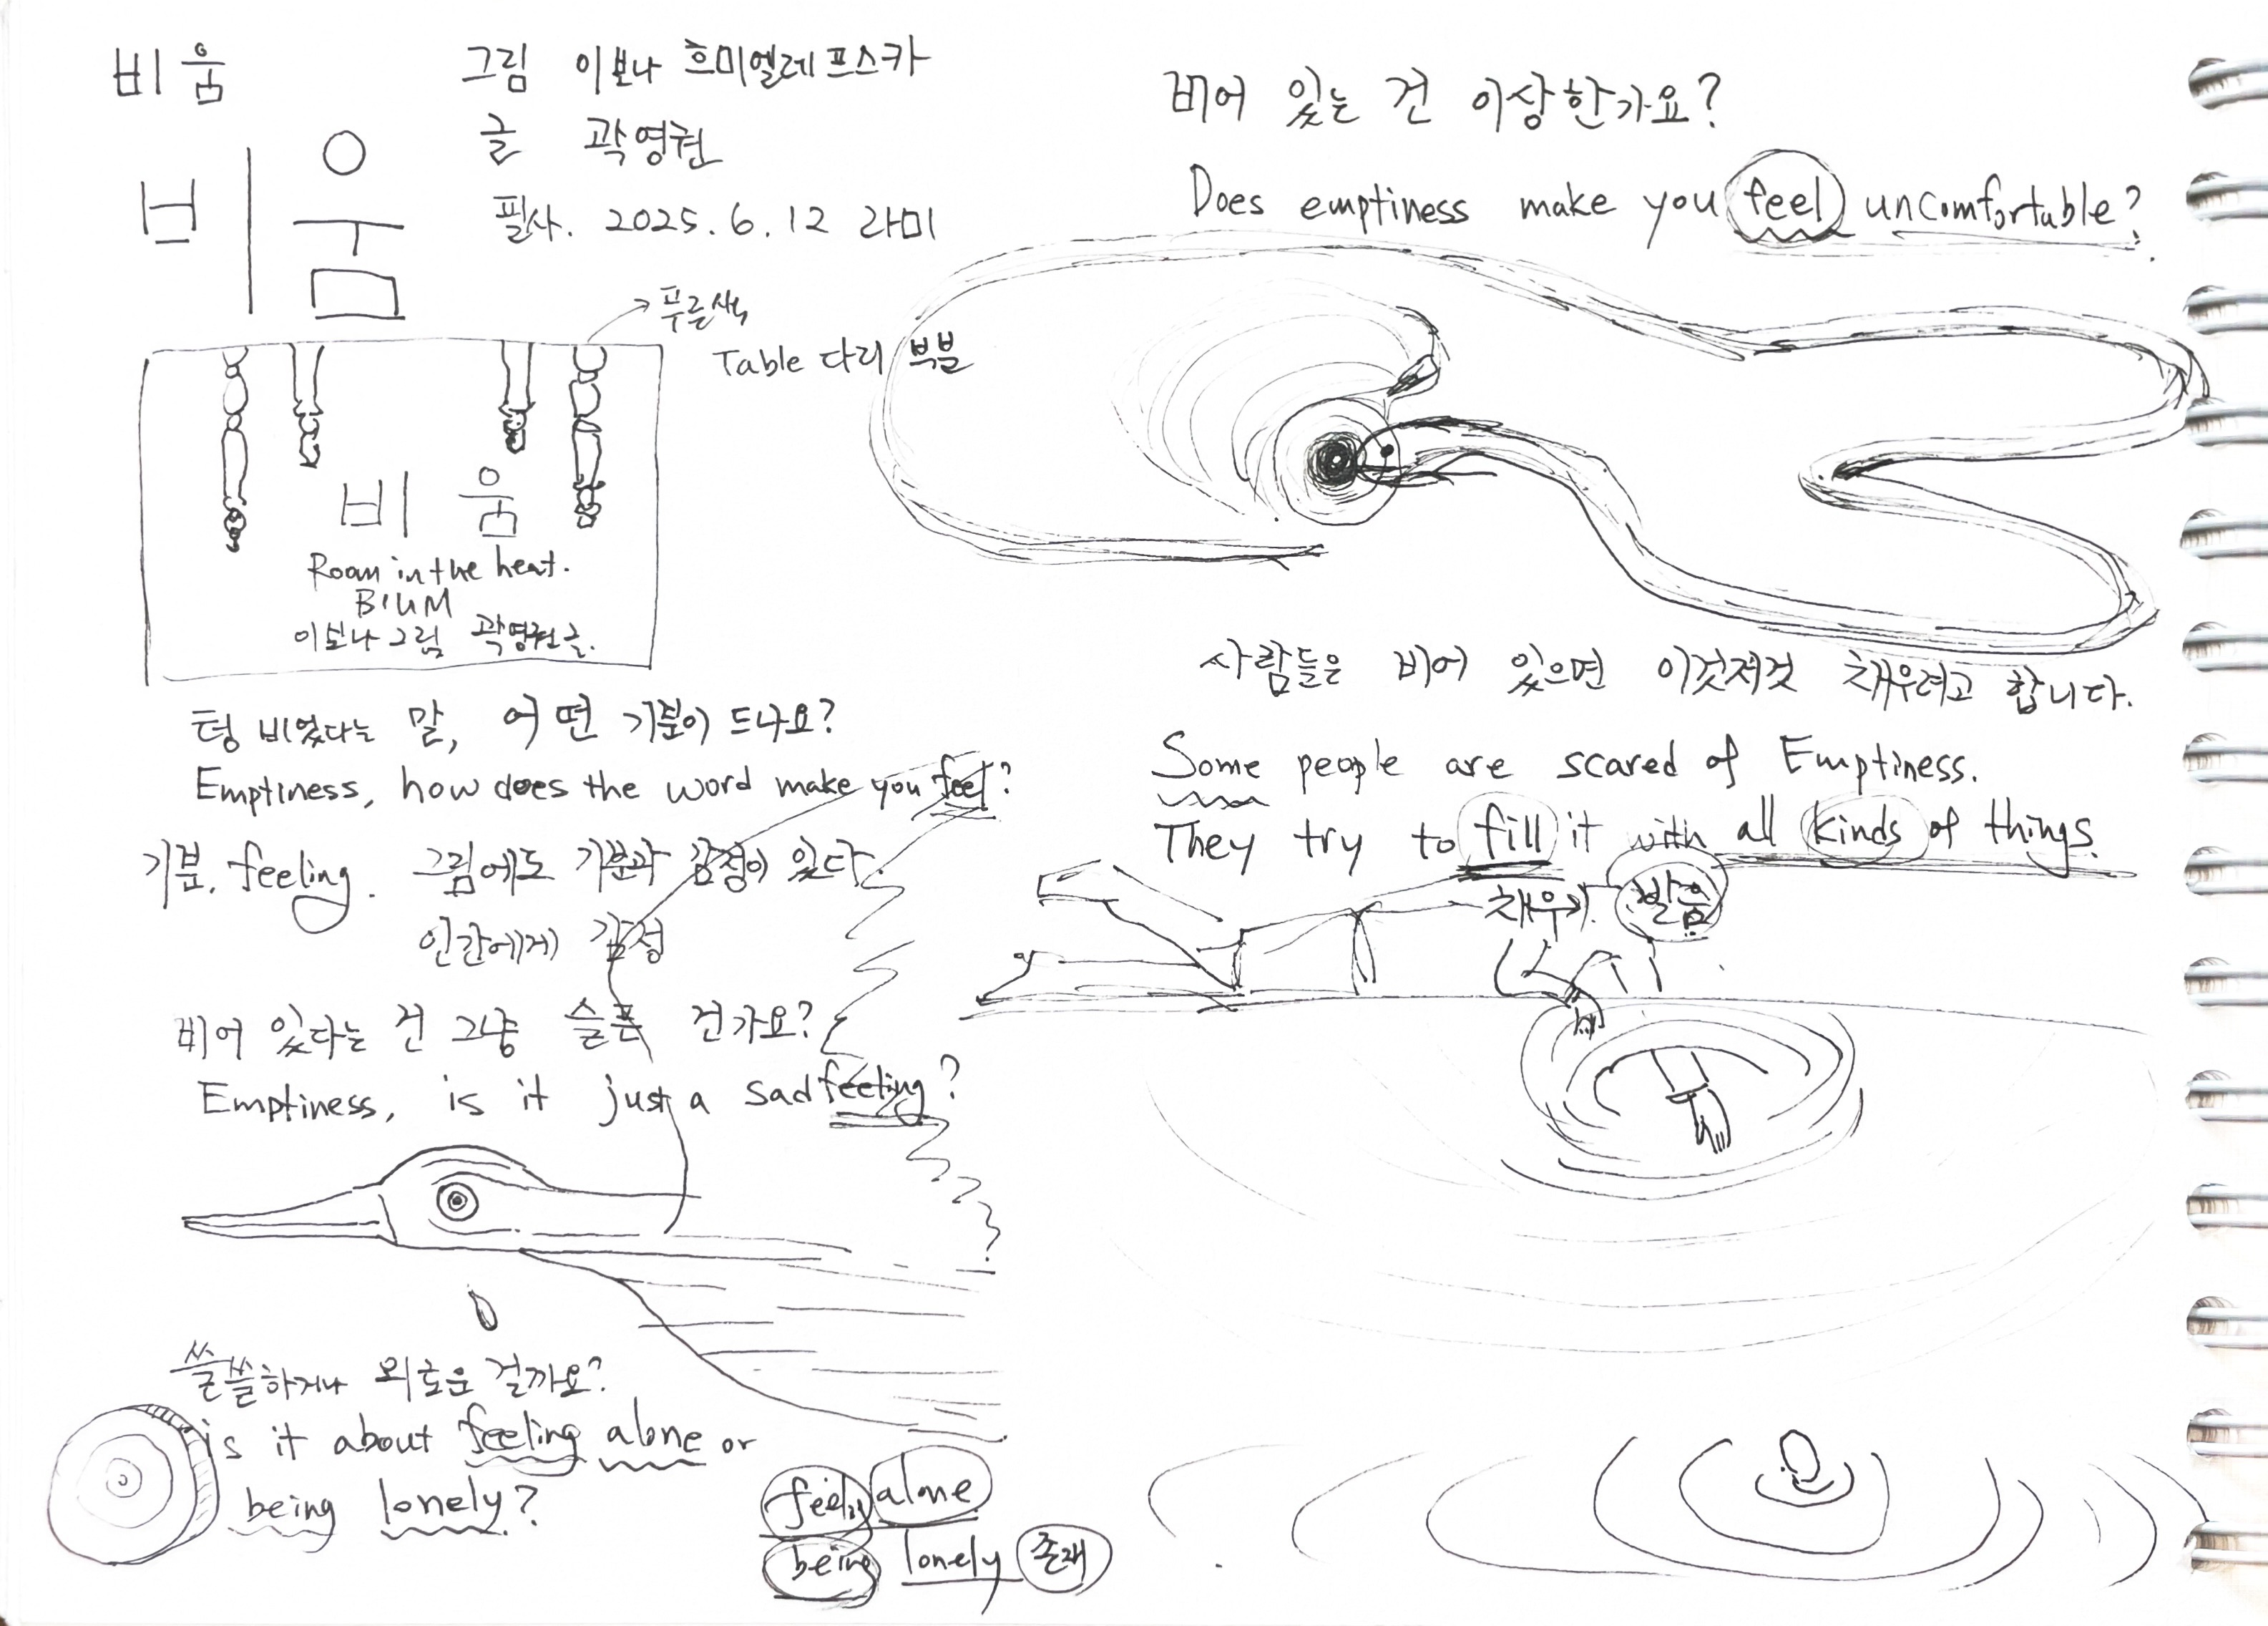 비움
그림 이보나 흐미엘레프스카
글 곽영권
필사. 2025.6.12 라미
비움
푸른색
Table 다리 부분
비움
Room in the heat.
BIUM
이보나 그림 곽영권 글.
텅 비었다는 말, 어떤 기분이 드나요?
Emptiness, how does the word make you feel?
기분. feeling. 그림에도 기분과 감정이 있다
인간에게 감정
비어 있다는 건 그냥 슬픈 건가요?
Emptiness, is it just a sad feeling?
쓸쓸하거나 외로운 걸까요?
is it about feeling alone or
being lonely?
feeling alone
being lonely 존재
비어 있는 건 이상한가요?
Does emptiness make you feel uncomfortable?
사람들은 비어 있으면 이것저것 채우려고 합니다.
Some people are scared of Emptiness.
They try to fill it with all kinds of things.
채우기 발음